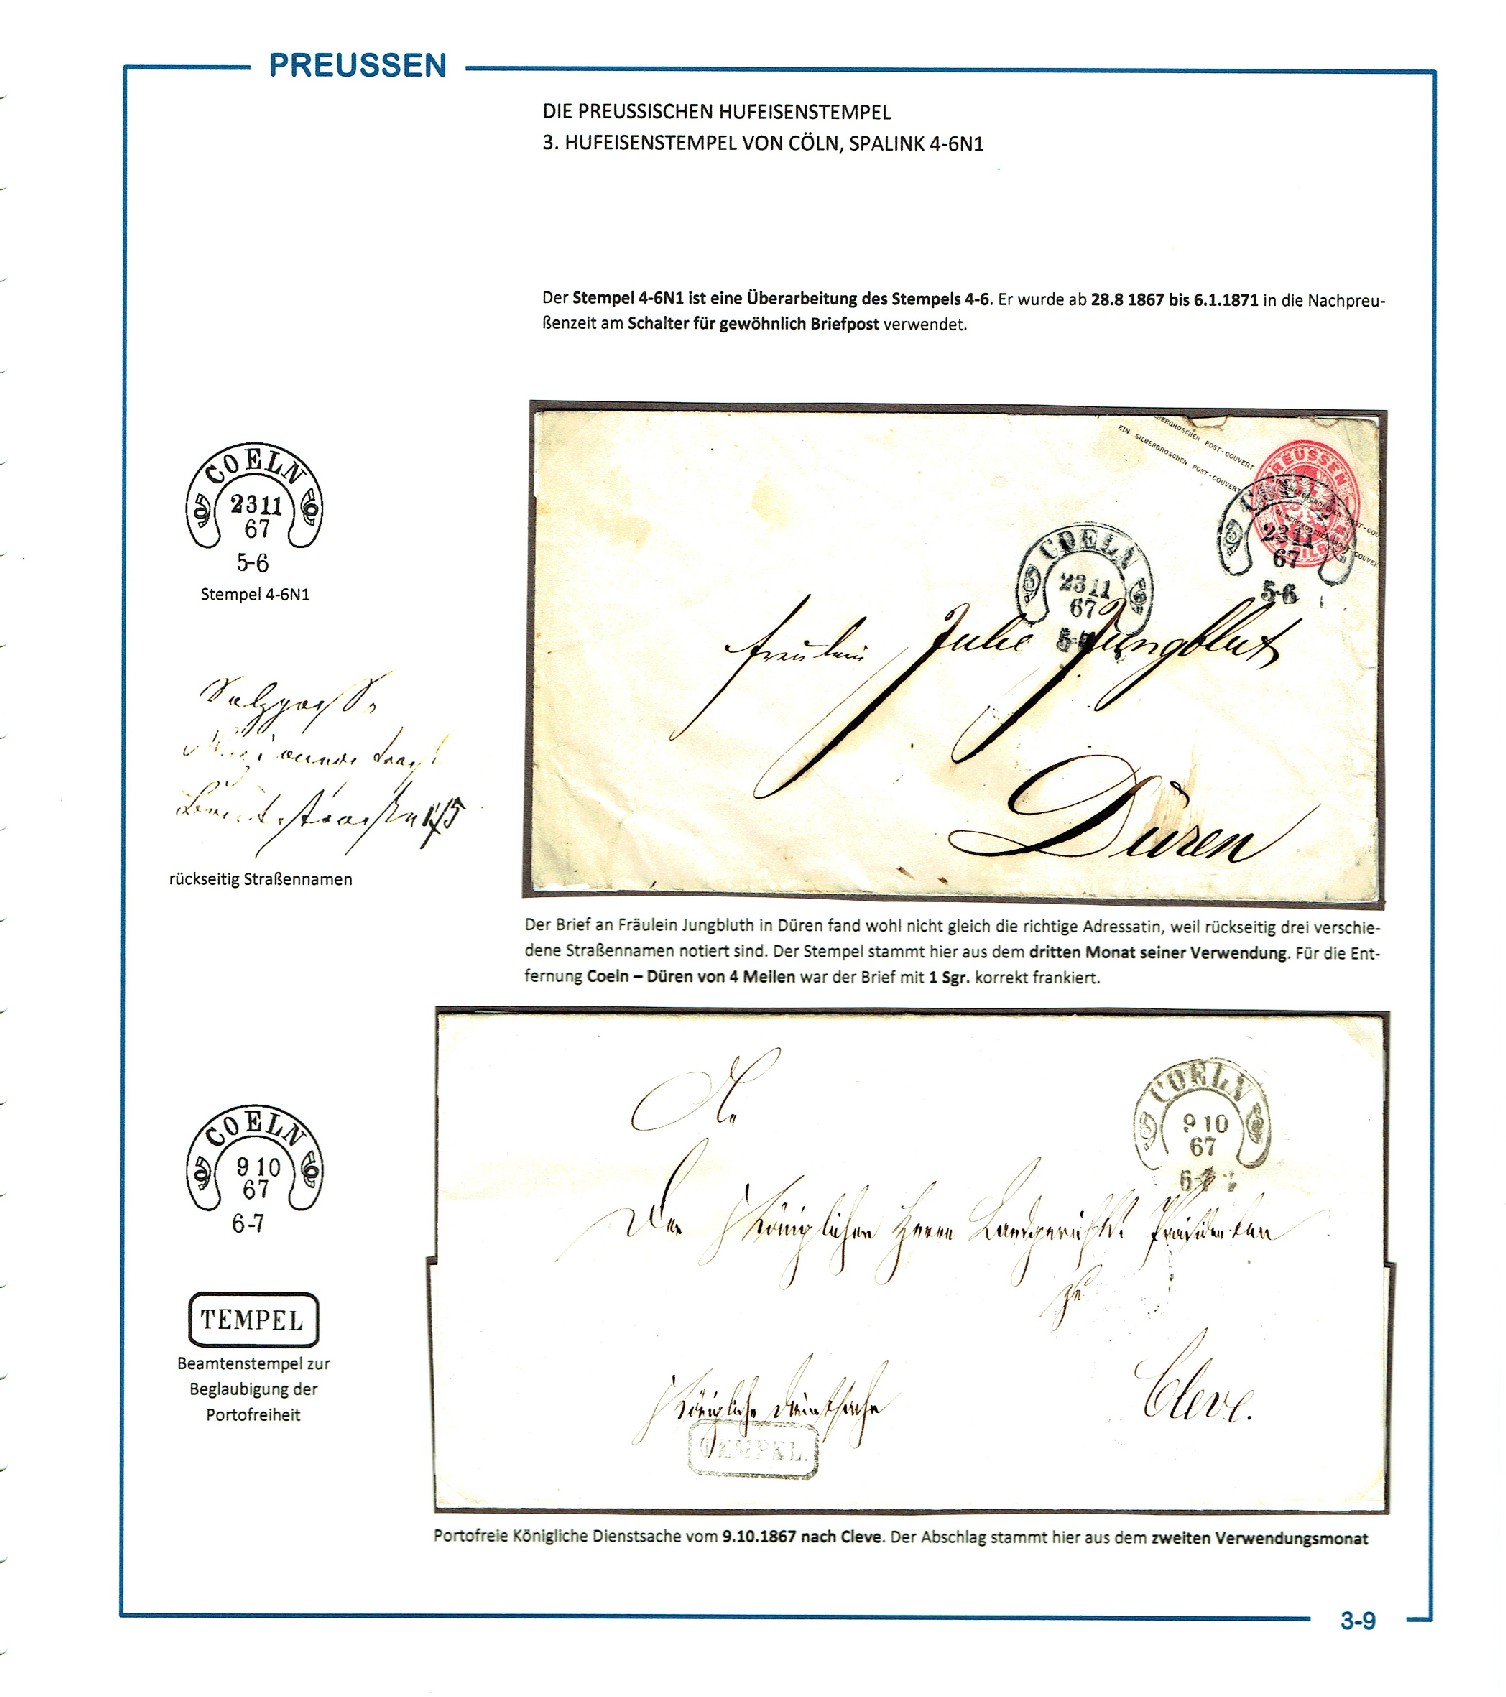 PREUSSEN
DIE PREUSSISCHEN HUFEISENSTEMPEL
3. HUFEISENSTEMPEL VON CÖLN, SPALINK 4-6N1
Der Stempel 4-6N1 ist eine Überarbeitung des Stempels 4-6. Er wurde ab 28.8 1867 bis 6.1.1871 in die Nachpreu-
ßenzeit am Schalter für gewöhnlich Briefpost verwendet.
COELN
23 11
67
5-6
Stempel 4-6N1
rückseitig Straßennamen
EIN SILBERGROSCHEN POST-COUVERT
PREUSSEN
COELN
23 11
67
5-6
COELN
23 11
67
Fräulein Julie Jungblut
Düren
Der Brief an Fräulein Jungbluth in Düren fand wohl nicht gleich die richtige Adressatin, weil rückseitig drei verschie-
dene Straßennamen notiert sind. Der Stempel stammt hier aus dem dritten Monat seiner Verwendung. Für die Ent-
fernung Coeln – Düren von 4 Meilen war der Brief mit 1 Sgr. korrekt frankiert.
COELN
9 10
67
6-7
TEMPEL
Beamtenstempel zur
Beglaubigung der
Portofreiheit
COELN
9 10
67
An
Den Königlichen Herrn Landgerichts Präsidenten
zu
Cleve.
Königliche Dienstsache
TEMPEL.
Portofreie Königliche Dienstsache vom 9.10.1867 nach Cleve. Der Abschlag stammt hier aus dem zweiten Verwendungsmonat
3-9